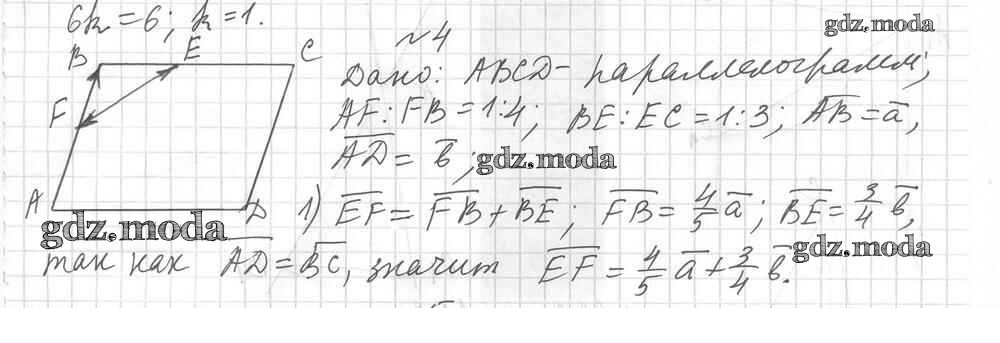 6k = 6; k = 1.
gdz.moda
№4
B E C
F
A D
Дано: ABCD - параллелограмм;
AF : FB = 1:4; BE : EC = 1:3; \overline{AB} = \overline{a},
\overline{AD} = \overline{b}; gdz.moda
1) \overline{EF} = \overline{FB} + \overline{BE}; \overline{FB} = \frac{4}{5} \overline{a}; \overline{BE} = \frac{3}{4} \overline{b},
gdz.moda
gdz.moda
так как \overline{AD} = \overline{BC}, значит \overline{EF} = \frac{4}{5} \overline{a} + \frac{3}{4} \overline{b}.